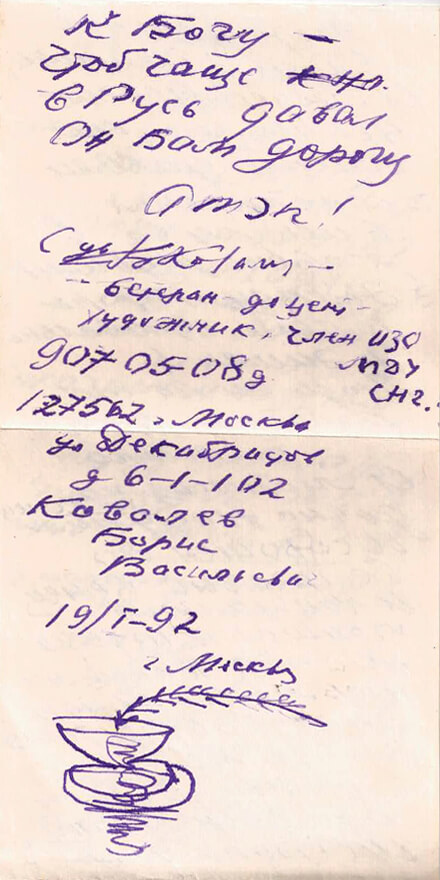 К Богу –
Чтоб чаще
в Русь давал
Он Вам дорогу
С ув
– ветеран доцент –
художник, член ИЗО
907-05-08 д МДУ
СНГ.
127562, г Москва
ул Декабристов
д 6-1-102
Ковалев
Борис
Васильевич
19/I-92
г Москва